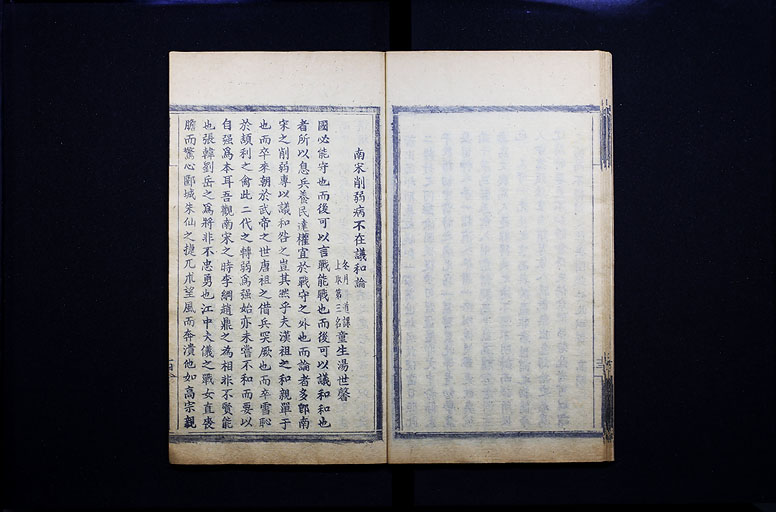 南宋削弱病不在議和論
冬月 道課
上取第三名童生湯世馨
國必能守也而後可以言戰能戰也而後可以議和和也
者所以息兵養民達權宜於戰守之外也而論者多鄙南
宋之削弱專以議和咎之豈其然乎夫漢祖之和親單于
也而卒來朝於武帝之世唐祖之借兵突厥也而卒雪恥
於頡利之禽此二代之轉弱為強始亦未嘗不和而要以
自强爲本耳吾觀南宋之時李綱趙鼎之為相非不賢能
也張韓劉岳之爲將非不忠勇也江中大儀之戰女直喪
膽而驚心郾城朱仙之捷兀朮望風而奔潰他如高宗親